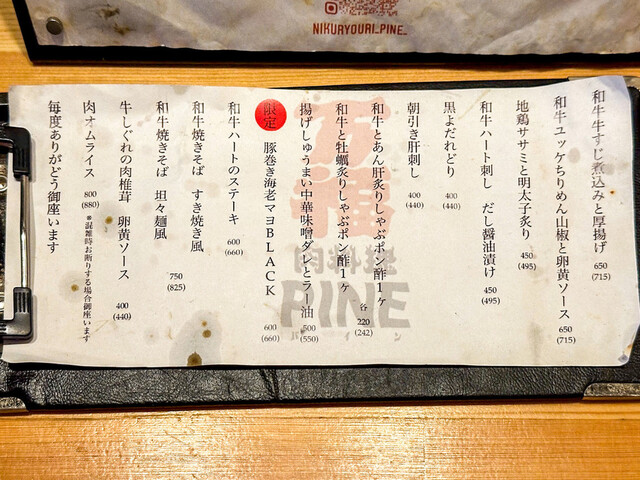 NIKURYOURI_PINE_
和牛 牛すじ煮込みと厚揚げ 650 (715)
和牛ユッケちりめん山椒と卵黄ソース 650 (715)
地鶏ササミと明太子炙り 450 (495)
和牛ハート刺し だし醤油漬け 450 (495)
黒よだれどり 400 (440)
朝引き肝刺し 400 (440)
和牛とあん肝炙りしゃぶポン酢1ヶ
和牛と牡蠣炙りしゃぶポン酢1ヶ 各 220 (242)
揚げしゅうまい中華味噌ダレとラー油 500 (550)
限定 豚巻き海老マヨBLACK 600 (660)
和牛ハートのステーキ 600 (660)
和牛焼きそば すき焼き風
和牛焼きそば 坦々麺風 750 (825)
牛しぐれの肉椎茸 卵黄ソース 400 (440)
肉オムライス 800 (880) ※混雑時お断りする場合御座います
毎度ありがとう御座います
万福
肉料理
PINE
パイン